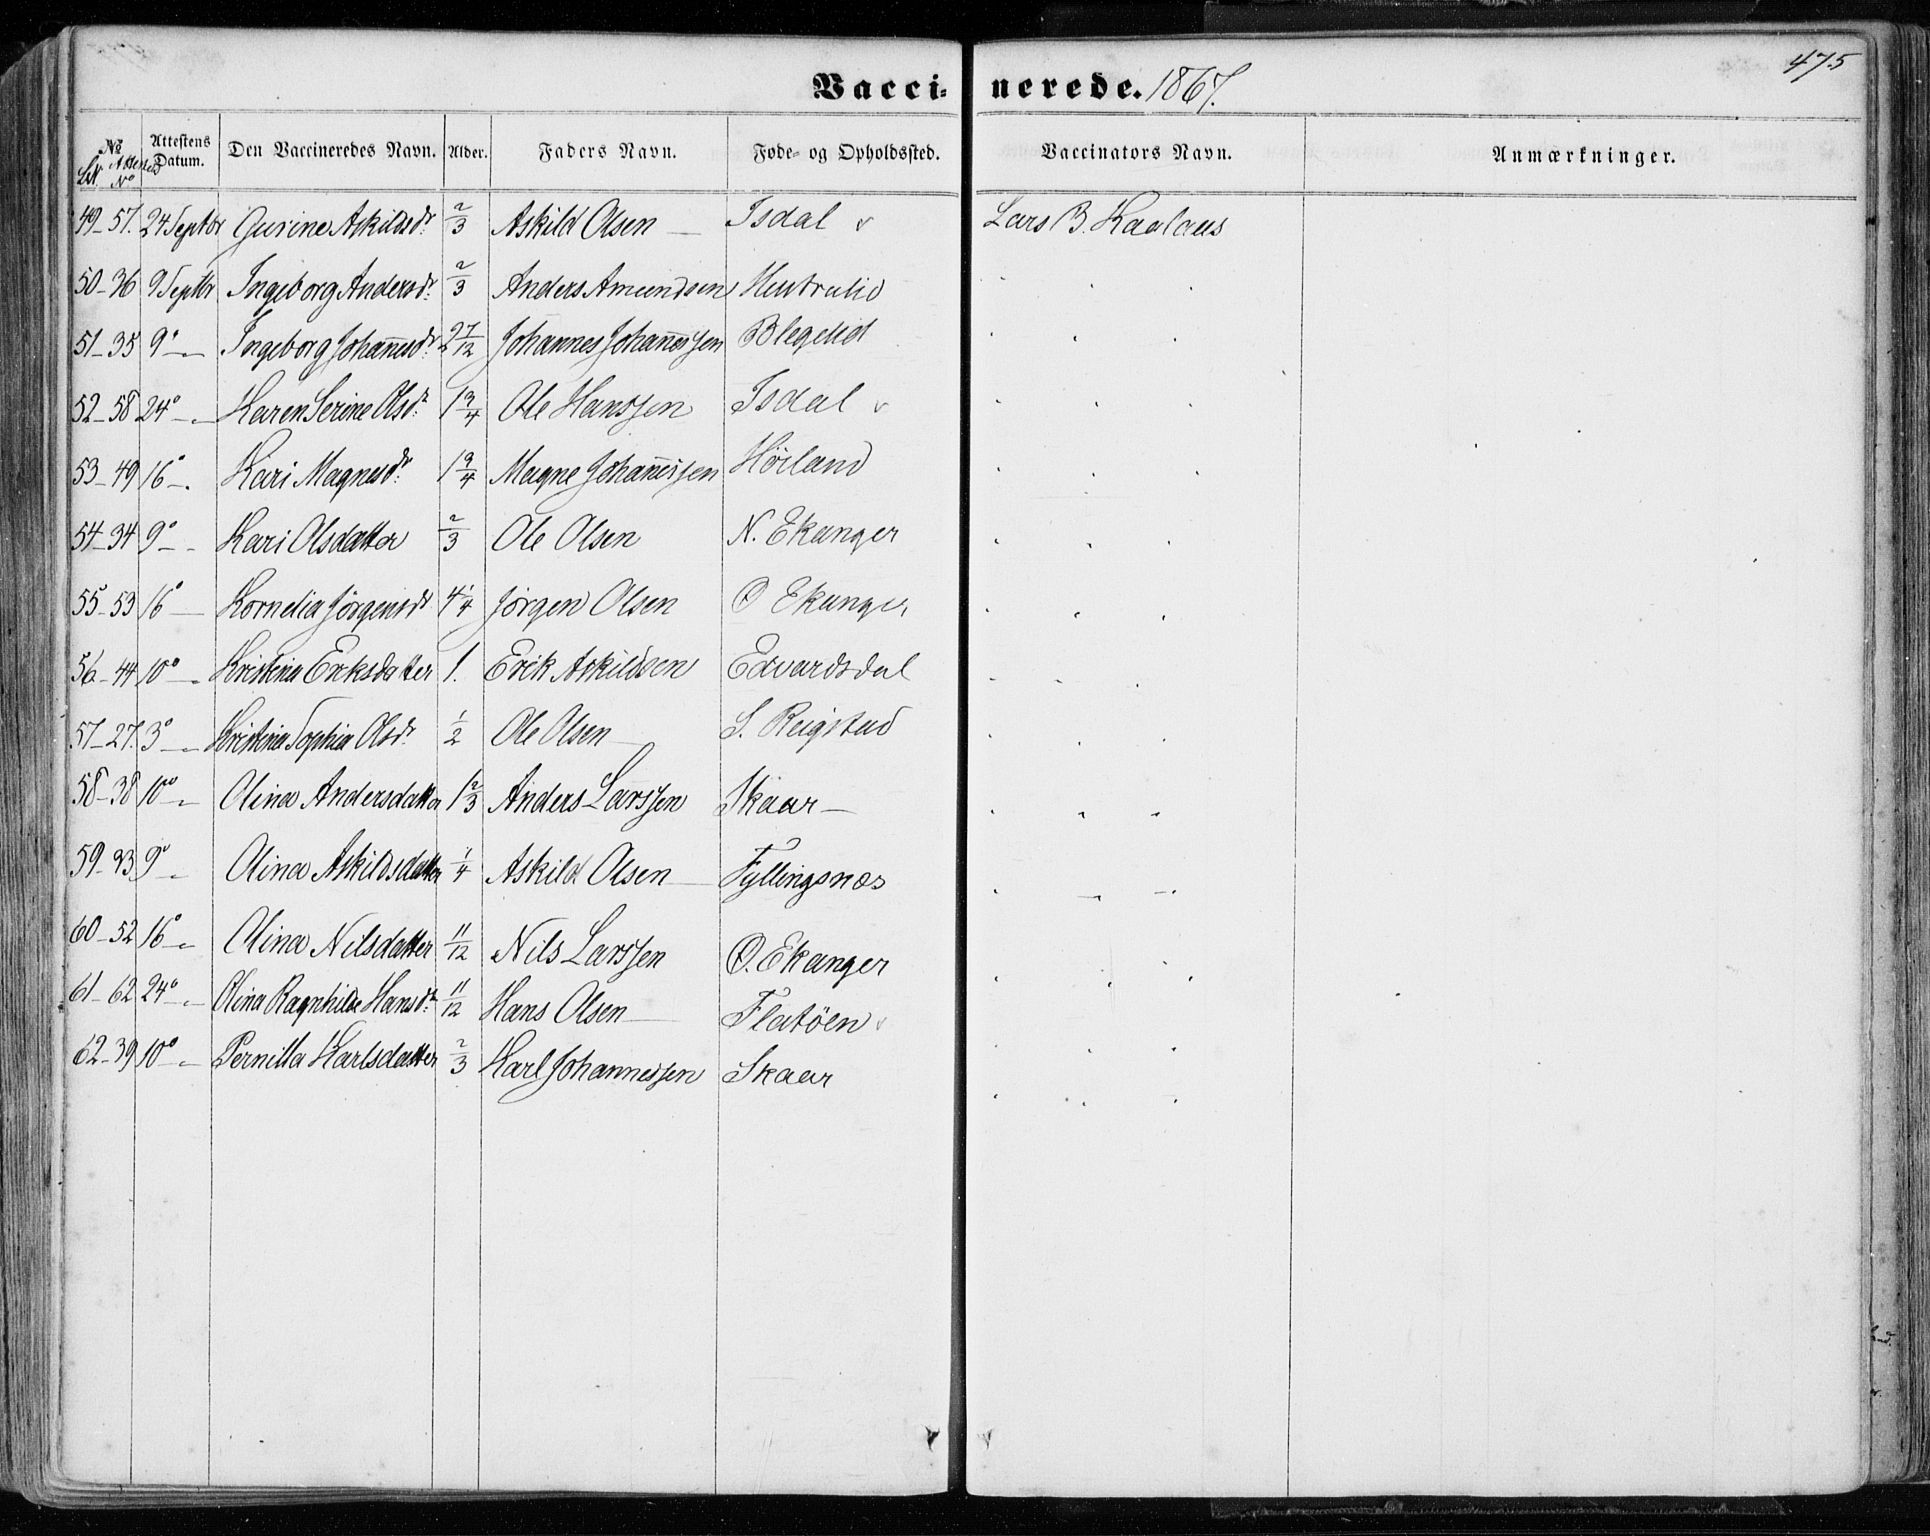 475
Vaccinerede. 1867.
No Attestens Datum. Den Vaccineredes Navn. Alder. Faders Navn. Føde- og Opholdssted. Vaccinators Navn. Anmærkninger.
No
49-57. 24 Septbr Gurine Askildsdr. 2/3 Askild Olsen — Isdal v Lars B. Kaalaas
50-36 9 Septbr Ingeborg Andersdr. 2/3 Anders Amundsen
51-35 9° — Ingeborg Johannesdr. 2 7/12 Johannes Johannessen Blegelid
52-58 24° — Karen Serine Olsdr. 1 3/4 Ole Hanssen Isdal v
53-49 16° —. Kari Magnesdr. 1 3/4 Magne Johannessen Höiland
54-34 9° — Kari Olsdatter 2/3 Ole Olsen N. Ekanger
55-53 16° — Kornelia Jörgensdr 4 1/4 Jörgen Olsen O Ekanger
56-44 10° — Kristina Eriksdatter 1. Erik Askildsen Edvardsdal
57-27. 3° — Kristina Sophia Olsdr. 1/2 Ole Olsen — S. Reigstad
58-38 10° — Olina Andersdatter 1 2/3 Anders Larssen Skaar —
59-33 9° — Olina Askildsdatter 1/4 Askild Olsen — Fyllingsnæs
60-52 16° — Olina Nilsdatter 11/12 Nils Larssen O. Ekanger
61-62 24° — Olina Ragnhilde Hansdr. 11/12 Hans Olsen — Flatöen v
62-39 10° — Pernilla Karlsdatter 2/3 Karl Johannessen Skaar